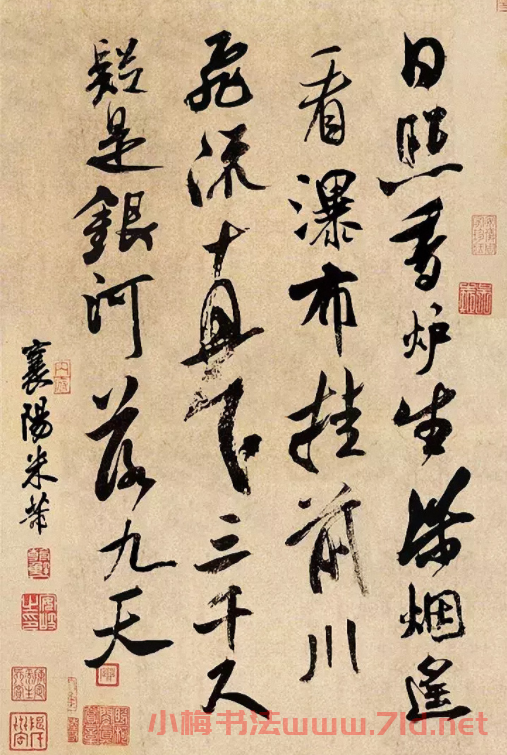 日照香炉生紫烟遥
看瀑布挂前川
飛流直下三千尺
疑是銀河落九天
襄陽米芾
小梅书法www.7ld.net